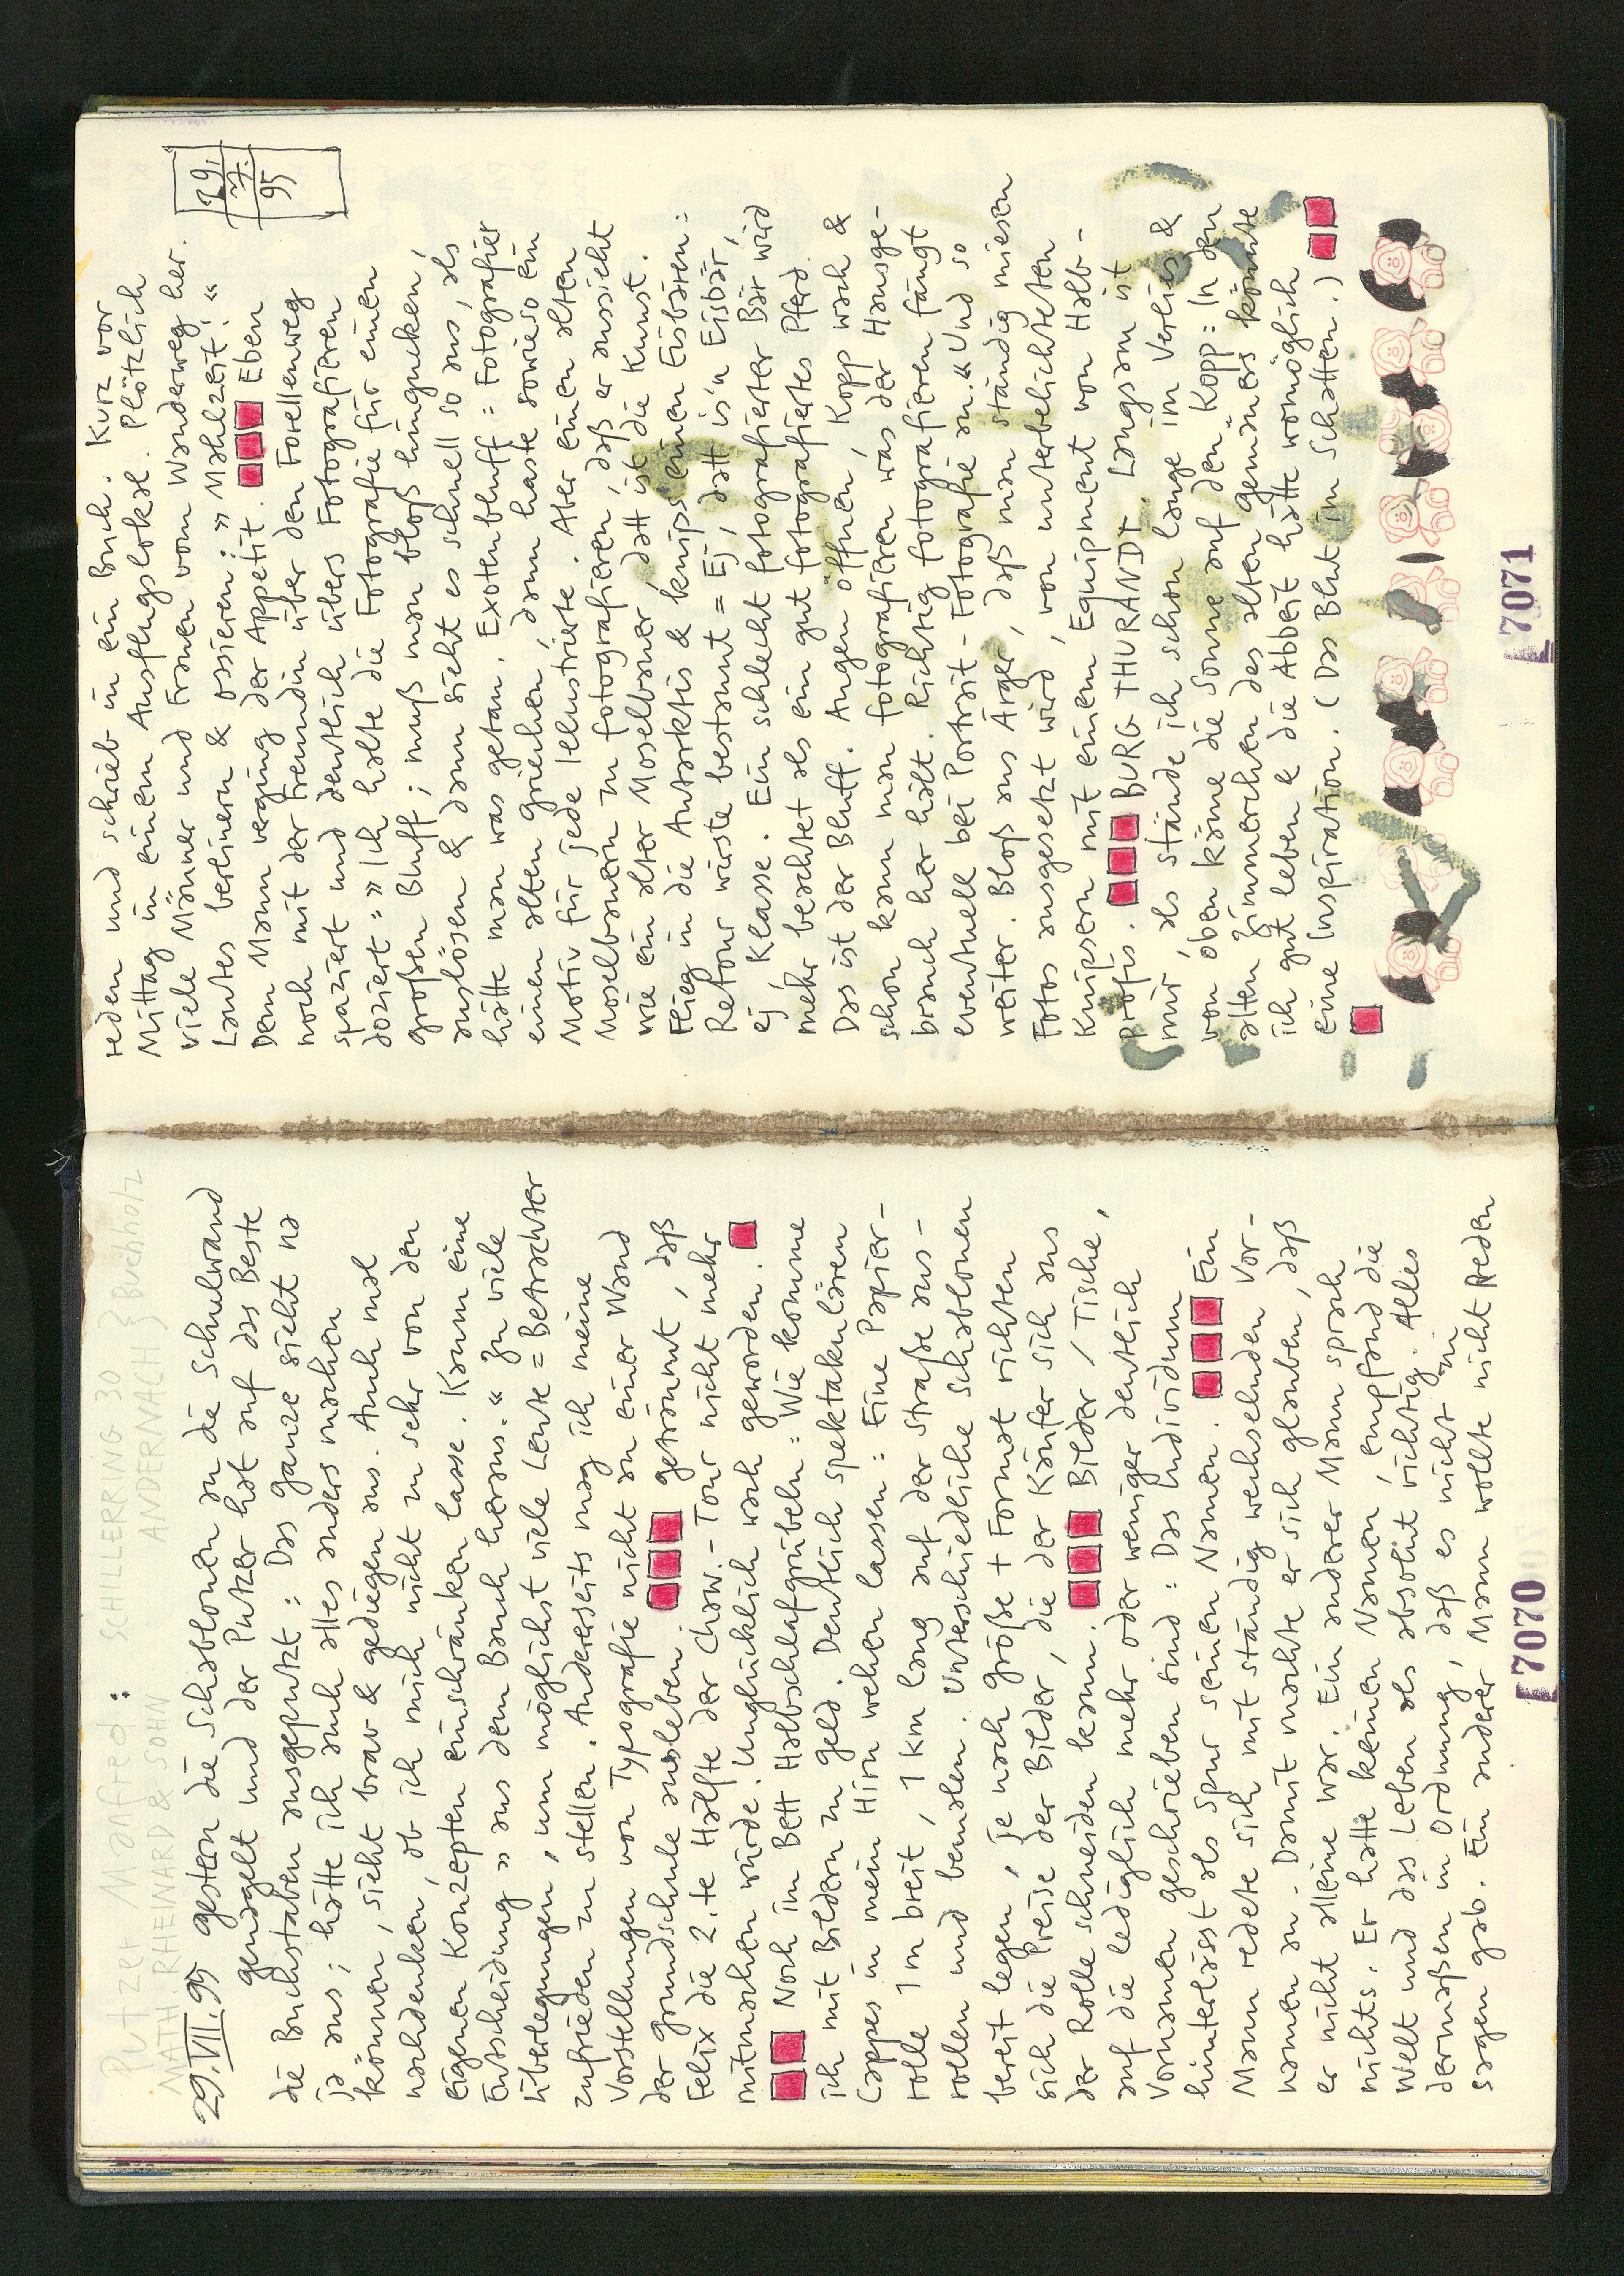 Putzer Manfred: SCHILLERRING 30
MATH. RHEINARD & SOHN ANDERNACH } Buchholz
29. VII. 95 gestern die Schablonen an die Schulwand
genagelt und der Putzer hat auf das Beste
die Buchstaben ausgeputzt: Das Ganze sieht na
ja aus; hätte ich auch alles anders machen
können, sieht brav & gediegen aus. Auch mal
nachdenken, ob ich mich nicht zu sehr von den
eigenen Konzepten einschränken lasse. Kaum eine
Entscheidung » aus dem Bauch heraus.« Zu viele
Überlegungen, um möglichst viele Leute = Betrachter
zufrieden zu stellen. Andererseits mag ich meine
Vorstellungen von Typografie nicht an einer Wand
der Grundschule ausleben. geträumt, daß
Felix die 2.te Hälfte der Chaw.-Tour nicht mehr
mitmachen würde. Unglücklich wach geworden.
Noch im Bett Halbschlafgrübeln: Wie komme
ich mit Bildern zu Geld. Deutlich spektakulären
Cappes in mein Hirn wehen lassen: Eine Papier-
rolle 1 m breit, 1 km lang auf der Straße aus-
rollen und bemalen. Unterschiedliche Schablonen
bereit legen, je nach Größe + Format richten
sich die Preise der Bilder, die der Käufer sich aus
der Rolle schneiden kann. Bilder / Tische,
auf die lediglich mehr oder weniger deutlich
Vornamen geschrieben sind: Das Individuum
hinterlässt als Spur seinen Namen. Ein
Mann redete sich mit ständig wechselnden Vor-
namen an. Damit machte er sich glauben, daß
er nicht alleine war. Ein anderer Mann sprach
nichts. Er hatte keinen Namen, empfand die
Welt und das Leben als absolut richtig. Alles
dermaßen in Ordnung, daß es nicht än
sagen gab. Ein anderer Mann wollte nicht reden
7070
reden und schrieb in ein Buch. Kurz vor
Mittag in einem Ausflugslokal. Plötzlich
viele Männer und Frauen vom Wanderweg her.
Lautes berlinern & ossieren: » Mahlzeit! «
Dem Mann verging der Appetit. Eben
noch mit der Freundin über den Forellenweg
spaziert und deutlich übers Fotografieren
doziert: » Ich halte die Fotografie für einen
großen Bluff; muß man bloß hingucken,
auslösen & dann sieht es schnell so aus, als
hätte man was getan. Exotenbluff: Fotografier
einen alten Griechen, dann haste sowieso ein
Motiv für jede Illustrierte. Aber einen alten
Moselbauern zu fotografieren, daß er aussieht
wie ein alter Moselbauer, datt ist die Kunst.
Flieg in die Antarktis & knips einen Eisbären:
Retour wirste bestaunt = Ej, datt is'n Eisbär,
ej, Klasse. Ein schlecht fotografierter Bär wird
mehr beachtet als ein gut fotografiertes Pferd.
Das ist der Bluff. Augen öffnen, Kopp wach &
schon kann man fotografieren was der Hausge-
brauch her hält. Richtig fotografieren fängt
eventuell bei Porträit-Fotografie an.« Und so
weiter. Bloß aus Ärger, daß man ständig miesen
Fotos ausgesetzt wird, von unterbelichteten
Knipsern mit einem Equipment von Halb-
profis. BURG THURANDT. Langsam ist
mir, als stände ich schon lange im Verlies &
von oben käme die Sonne auf den Kopp: In den
alten Zimmerchen des alten Gemäuers könnte
ich gut leben & die Abbeit hätte womöglich
eine Inspiration. (Das Blut im Schatten.)
29.
7.
95
7071